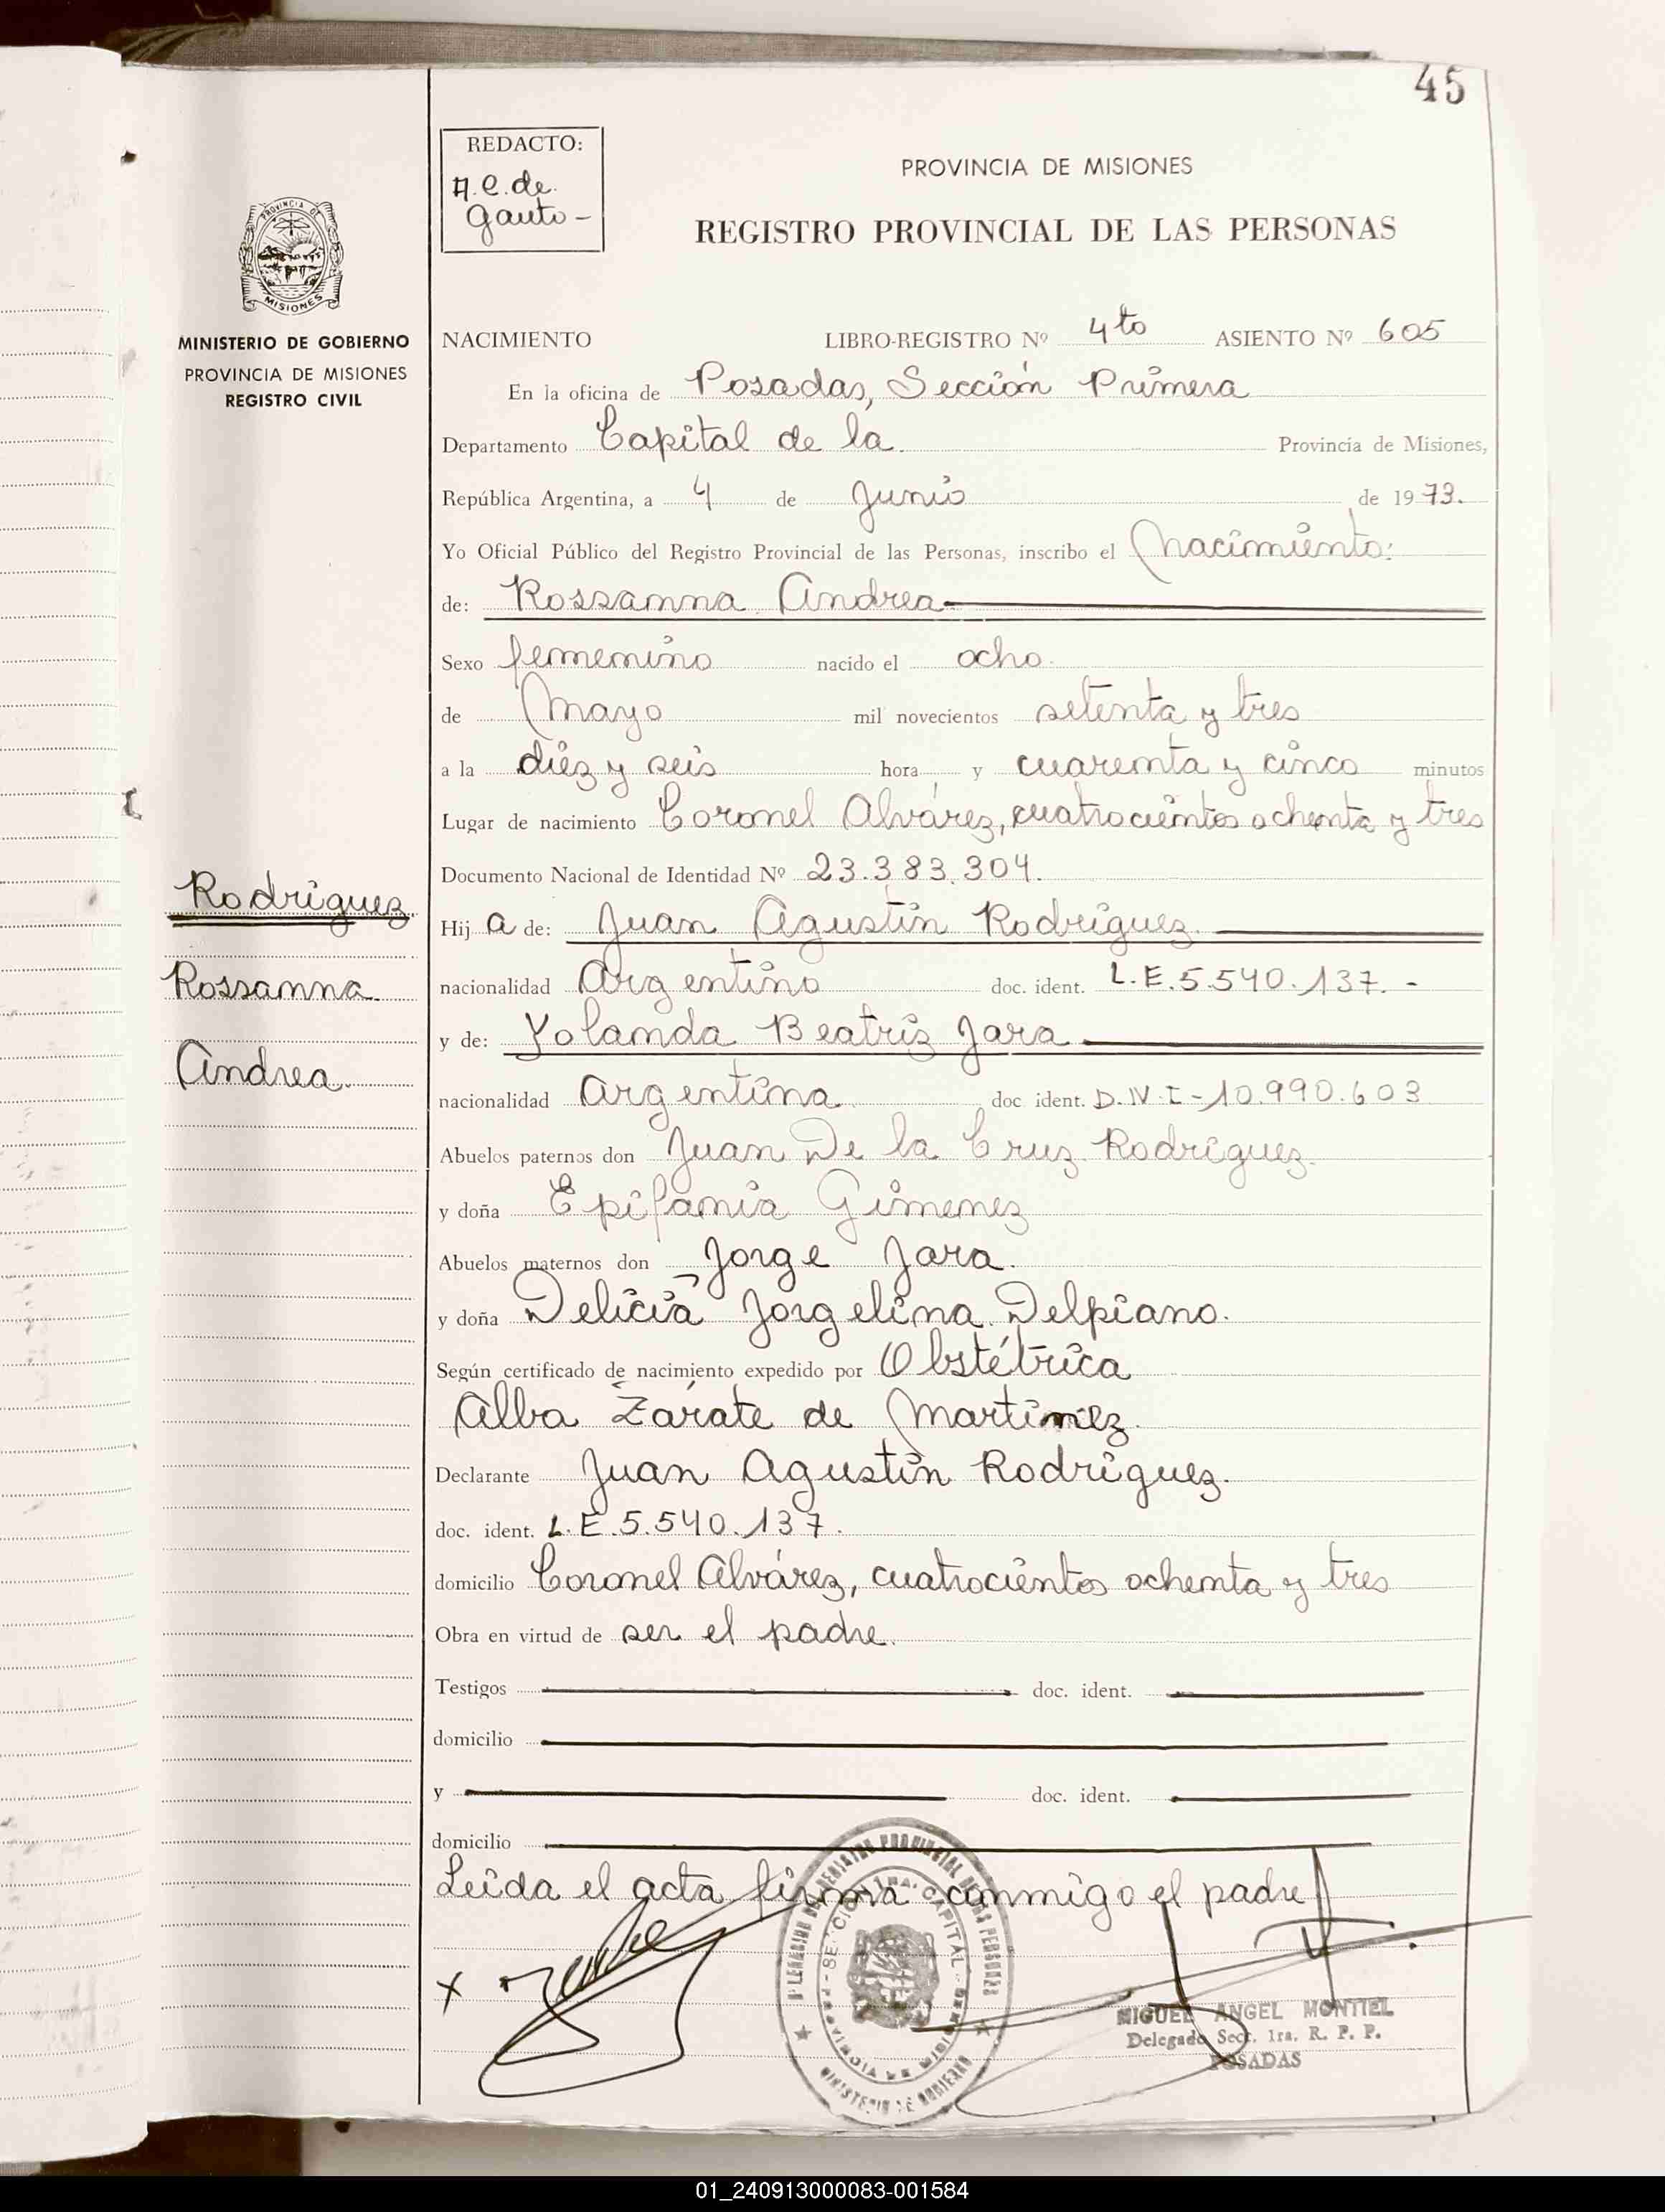 45
REDACTO:
A.C. de
Gauto -
PROVINCIA DE MISIONES
REGISTRO PROVINCIAL DE LAS PERSONAS
PROVINCIA DE
MISIONES
MINISTERIO DE GOBIERNO
PROVINCIA DE MISIONES
REGISTRO CIVIL
NACIMIENTO LIBRO-REGISTRO Nº 4to ASIENTO Nº 605
En la oficina de Posadas, Sección Primera
Departamento Capital de la Provincia de Misiones,
República Argentina, a 4 de Junio de 1973.
Yo Oficial Público del Registro Provincial de las Personas, inscribo el Nacimiento:
de: Rossanna Andrea
Sexo femenino nacido el ocho
de Mayo mil novecientos setenta y tres
a la diéz y seis hora y cuarenta y cinco minutos
Lugar de nacimiento Coronel Alvárez, cuatrocientos ochenta y tres
Documento Nacional de Identidad Nº 23.383.304.
Hij a de: Juan Agustín Rodríguez.
nacionalidad Argentino doc. ident. L.E.5.540.137. -
y de: Yolanda Beatríz Jara
nacionalidad Argentina doc. ident. D.N.I-10.990.603
Abuelos paternos don Juan De la Cruz Rodríguez.
y doña Epifania Gimenez
Abuelos maternos don Jorge Jara.
y doña Delicia Jorgelina Delpiano.
Según certificado de nacimiento expedido por Obstétrica
Alba Zárate de Martinez.
Declarante Juan Agustín Rodríguez.
doc. ident. L.E.5.540.137.
domicilio Coronel Alvárez, cuatrocientos ochenta y tres
Obra en virtud de ser el padre.
Testigos doc. ident.
domicilio
y doc. ident.
domicilio
Leída el acta firma conmigo el padre
Rodríguez
Rossanna
Andrea.
X
REGISTRO PROVINCIAL DE LAS PERSONAS
SECCION 1ra. CAPITAL
PROVINCIA DE MISIONES
MINISTERIO DE GOBIERNO
MIGUEL ANGEL MONTIEL
Delegado Secc. 1ra. R. P. P.
POSADAS
01_240913000083-001584